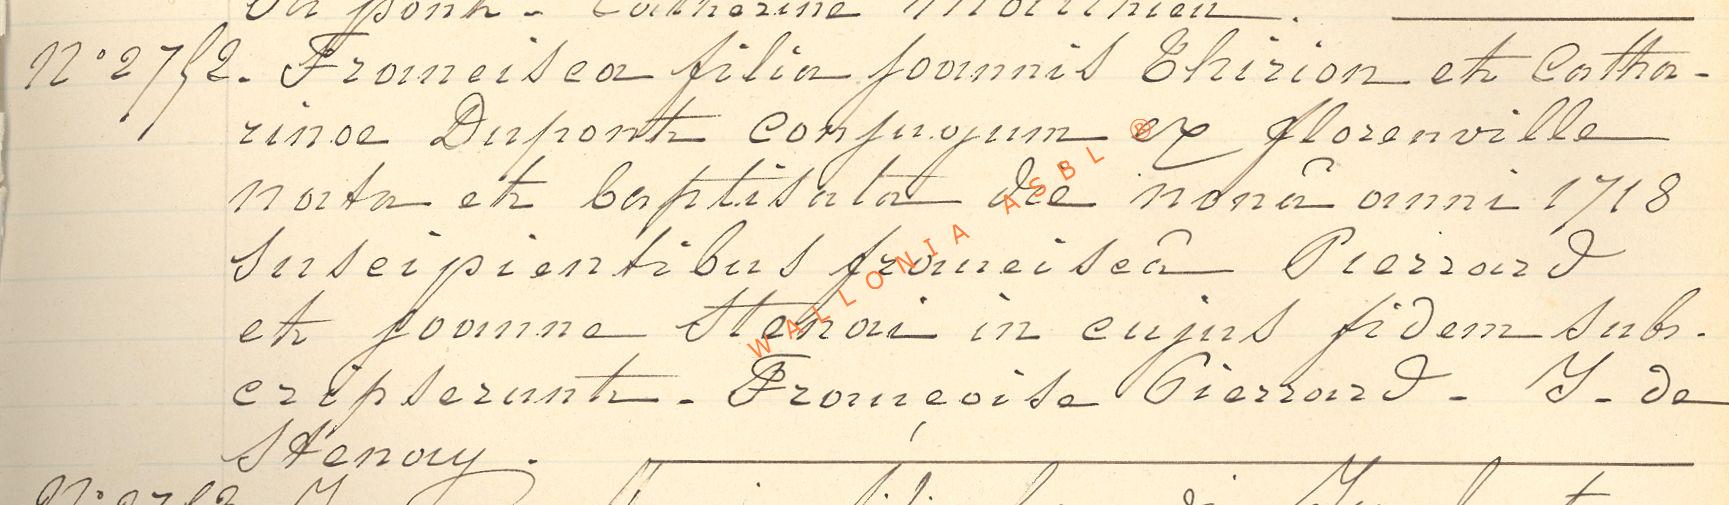 Dupont - Catherine Matthieu.
N° 27/2. Francisca filia joannis Thirion et Catha-
rinoe Dupont conjugum ex florenville
nata et baptisata die nonâ anni 1718
suscipientibus franciscâ Pierrard
et joanne Stenai in cujus fidem sub-
cripserunt - Françoise Pierrard - J - de
Stenay.
WALLONIA ASBL ®